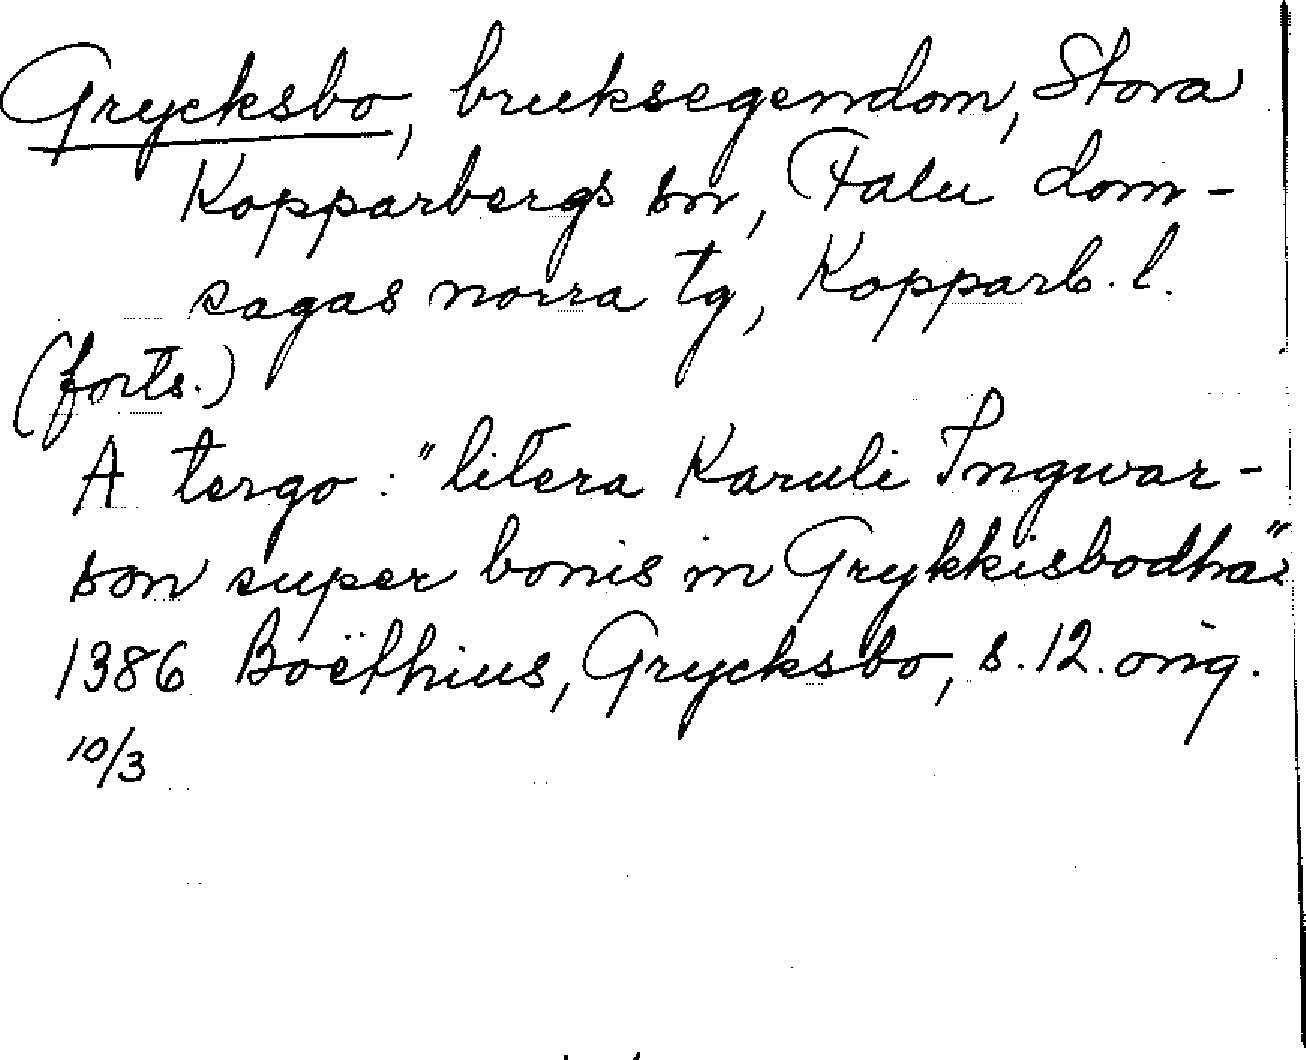 Grycksbo, bruksegendom, Stora
Kopparbergs sn, Falu dom-
sagas norra tg, Kopparb. l.
(forts.)
A tergo: "litera Karuli Ingwar-
son super bonis in Grykkisbodha"
1386 Boëthius, Grycksbo, s. 12. orig.
10/3